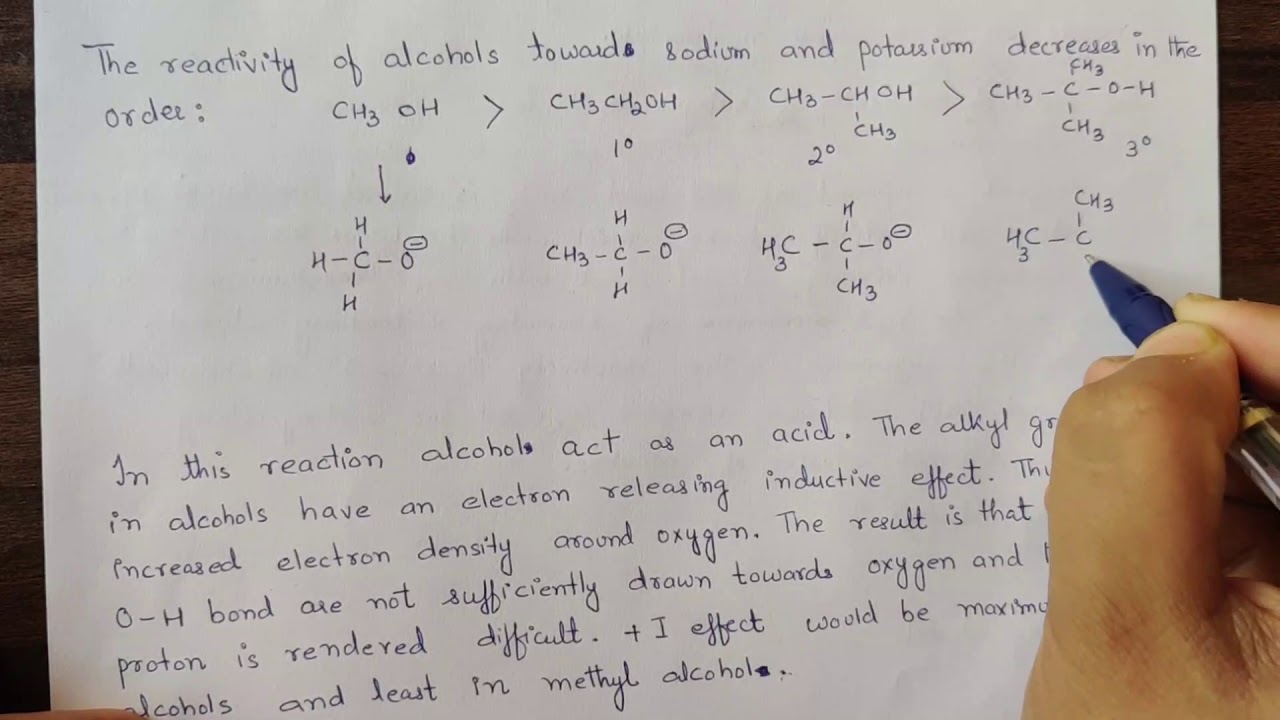 The reactivity of alcohols towards sodium and potassium decreases in the
order: CH3 OH > CH3CH2OH > CH3-CHOH > CH3-C-O-H
CH3
CH3
CH3
1° 2° 3°
H H H CH3
H-C-O⊖ CH3-C-O⊖ H3C-C-O⊖ H3C-C
H H CH3
In this reaction alcohols act as an acid. The alkyl
in alcohols have an electron releasing inductive effect.
increased electron density around oxygen. The result is that
O-H bond are not sufficiently drawn towards oxygen and
proton is rendered difficult. +I effect would be
alcohols and least in methyl alcohols.